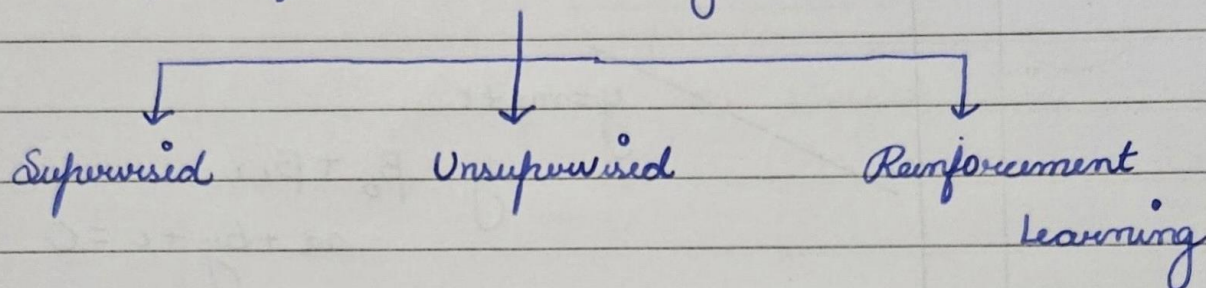 Supervised Unsupervised Reinforcement
Learning